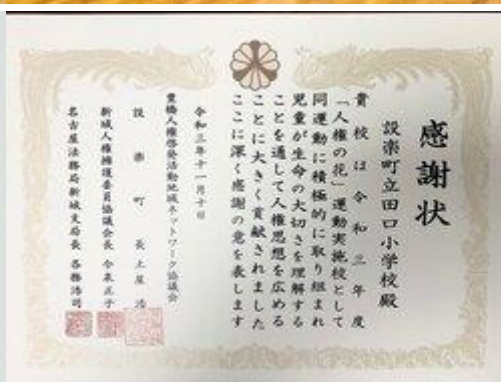 感謝状
設楽町立田口小学校殿
貴校は令和三年度
「人権の花」運動実施校として
同運動に積極的に取り組まれ
児童が生命の大切さを理解する
ことを通して人権思想を広める
ことに大きく貢献されました
ここに深く感謝の意を表します
令和三年十一月十日
豊橋人権啓発活動地域ネットワーク協議会
設楽町長 土屋浩
新城人権擁護委員協議会長 今泉正子
名古屋法務局新城支局長 各務浩司